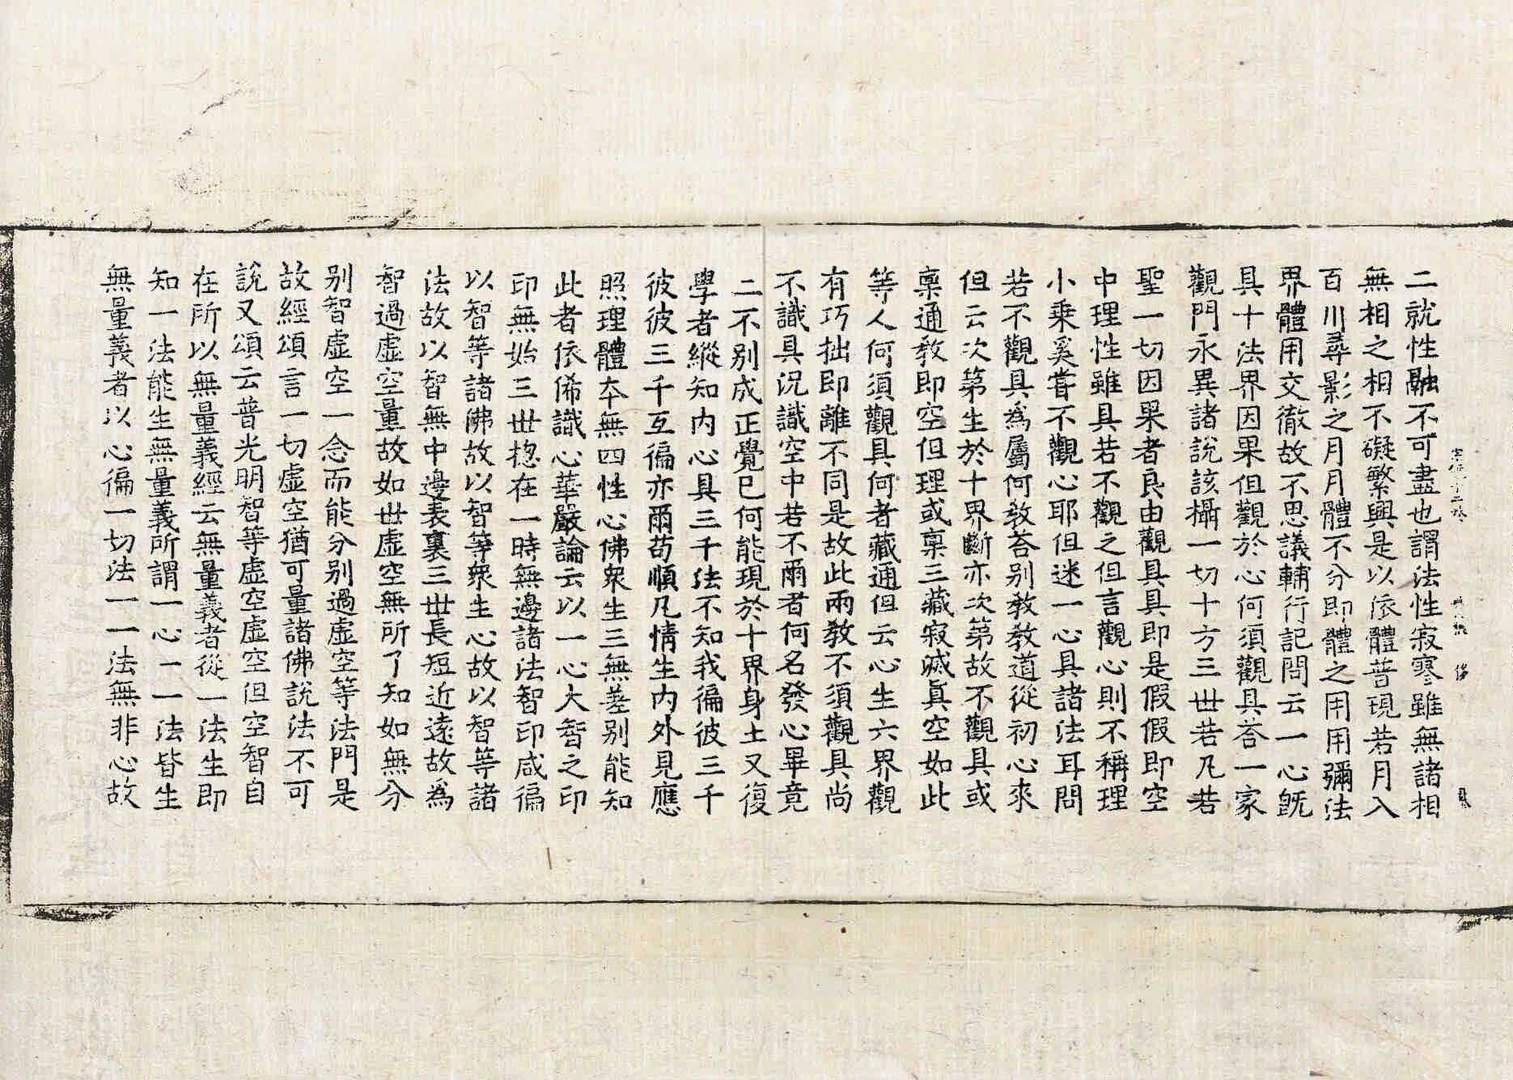 二就性融不可盡也謂法性寂寥雖無諸相
無相之相不礙繁興是以依體普現若月入
百川尋影之月月體不分即體之用用彌法
界體用交徹故不思議輔行記問云一心旣
具十法界因果但觀於心何須觀具荅一家
觀門永異諸說該攝一切十方三世若凡若
聖一切因果者良由觀具具即是假假即空
中理性雖具若不觀之但言觀心則不稱理
小乘奚甞不觀心耶但迷一心具諸法耳問
若不觀具爲屬何敎荅别敎敎道從初心來
但云次第生於十界斷亦次第故不觀具或
稟通敎即空但理或稟三藏寂滅眞空如此
等人何須觀具何者藏通但云心生六界觀
有巧拙即離不同是故此兩敎不須觀具尚
不識具況識空中若不爾者何名發心畢竟
二不别成正覺已何能現於十界身土又復
學者縱知内心具三千法不知我徧彼三千
彼彼三千互徧亦爾苟順凡情生内外見應
照理體本無四性心佛衆生三無差别能知
此者依俙識心華嚴論云以一心大智之印
印無始三世揔在一時無邊諸法智印咸徧
以智等諸佛故以智等衆生心故以智等諸
法故以智無中邊表裏三世長短近遠故爲
智過虚空量故如世虚空無所了知如無分
别智虚空一念而能分别過虚空等法門是
故經頌言一切虚空猶可量諸佛說法不可
說又頌云普光明智等虚空虚空但空智自
在所以無量義經云無量義者從一法生即
知一法能生無量義所謂一心一一法皆生
無量義者以心徧一切法一一法無非心故